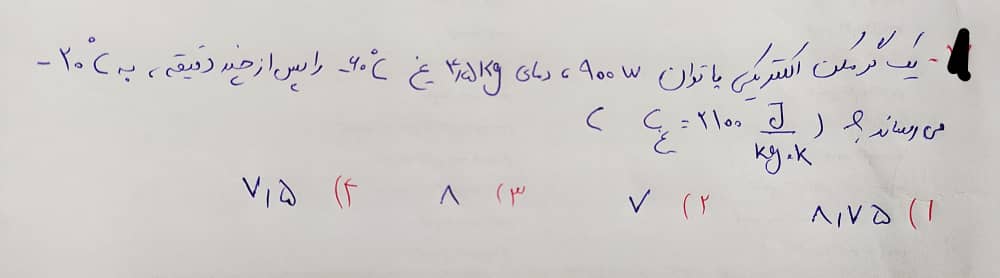 - یک گرمکن الکتریکی با توان ۹۰۰ w ، دمای ۴٫۵ kg یخ ۶۰°C- را پس از چند دقیقه ، به ۲۰°C-
می رساند؟ ( C یخ = ۲۱۰۰ J/kg.k )
۱) ۸٫۷۵ ۲) ۷ ۳) ۸ ۴) ۷٫۵